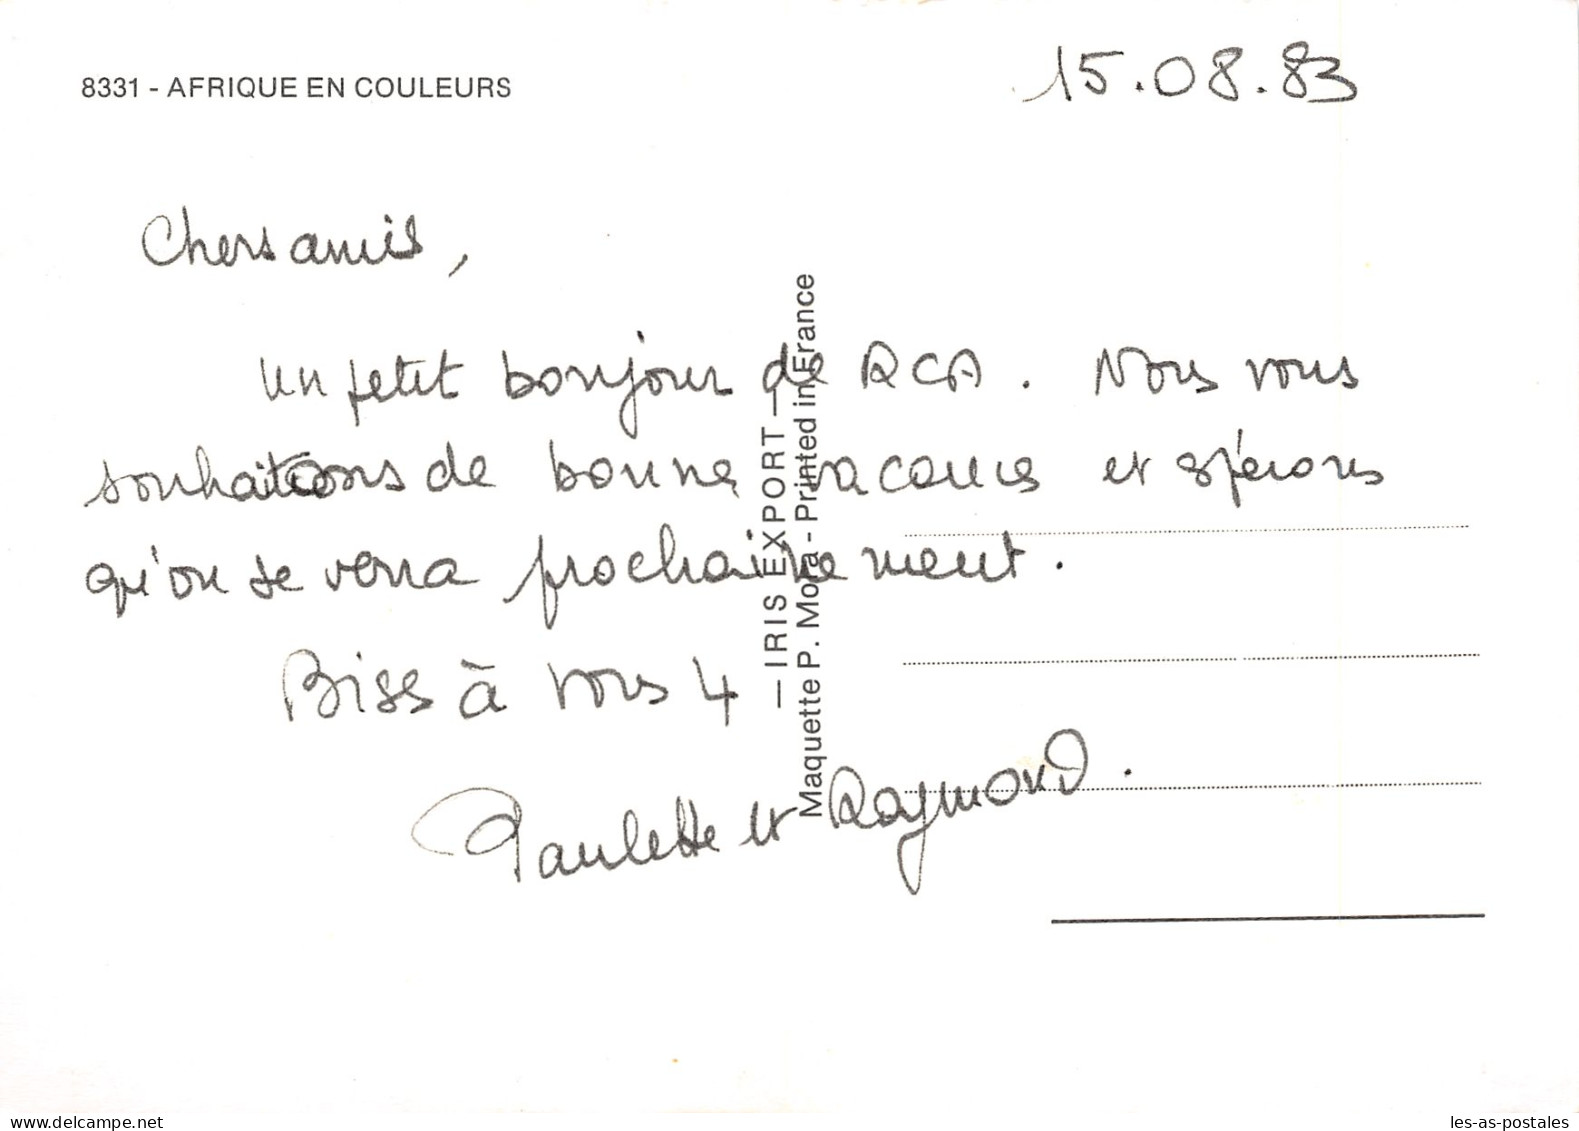 8331 - AFRIQUE EN COULEURS
15.08.83
Chers amis,
Un petit bonjour de RCA. Nous vous
souhaitons de bonne vacances et spérons
qu'on se verra prochainement.
Biss à vous 4
Paulette et Raymond.
— IRIS EXPORT —
Maquette P. Mora - Printed in France
www.delcampe.net
les-as-postales